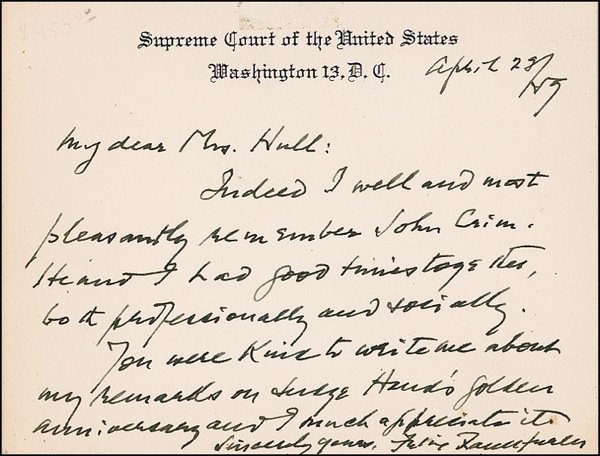 Supreme Court of the United States
Washington 13, D. C.
April 23/
/59
My dear Mrs. Hull:
Indeed I well and most
pleasantly remember John Crim.
He and I had good times together,
both professionally and socially.
You were kind to write me about
my remarks on Judge Hand's golden
anniversary and I much appreciate it.
Sincerely yours, Felix Frankfurter